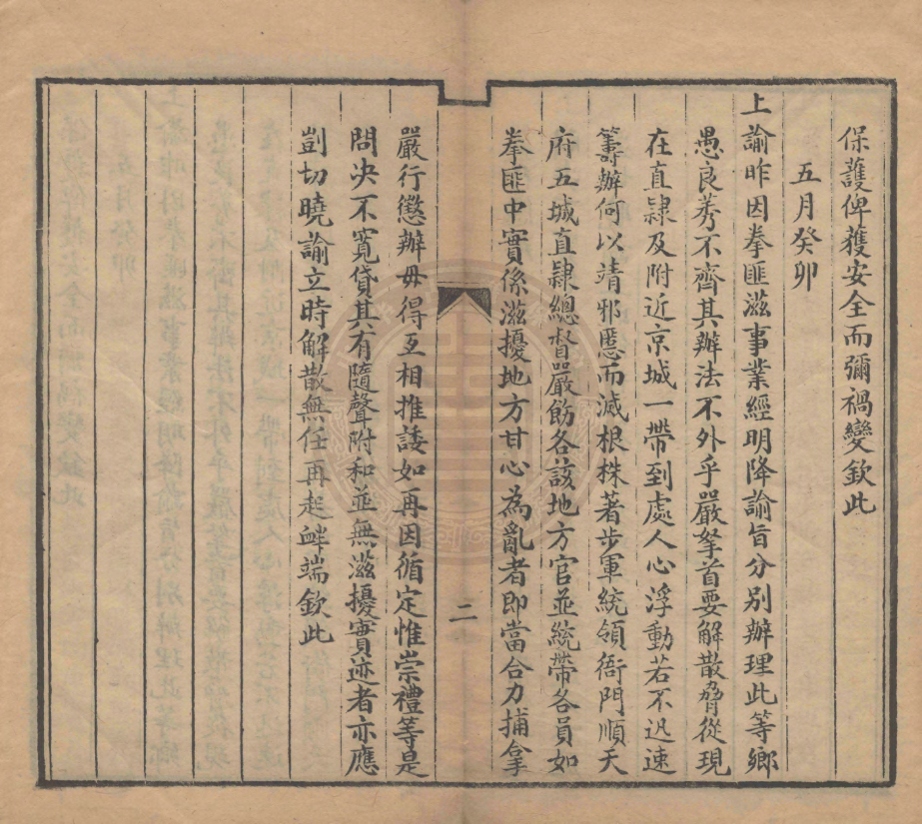 保護俾獲安全而彌禍變欽此
五月癸卯
上諭昨因拳匪滋事業經明降諭旨分別辦理此等鄉
愚良莠不齊其辦法不外乎嚴拏首要解散脅從現
在直隸及附近京城一帶到處人心浮動若不迅速
籌辦何以靖邪慝而滅根株著步軍統領衙門順天
府五城直隸總督嚴飭各該地方官並統帶各員如
拳匪中實係滋擾地方甘心為亂者即當合力捕拿
二
嚴行懲辦毋得互相推諉如再因循定惟崇禮等是
問決不寬貸其有隨聲附和並無滋擾實迹者亦應
剴切曉諭立時解散無任再起衅端欽此